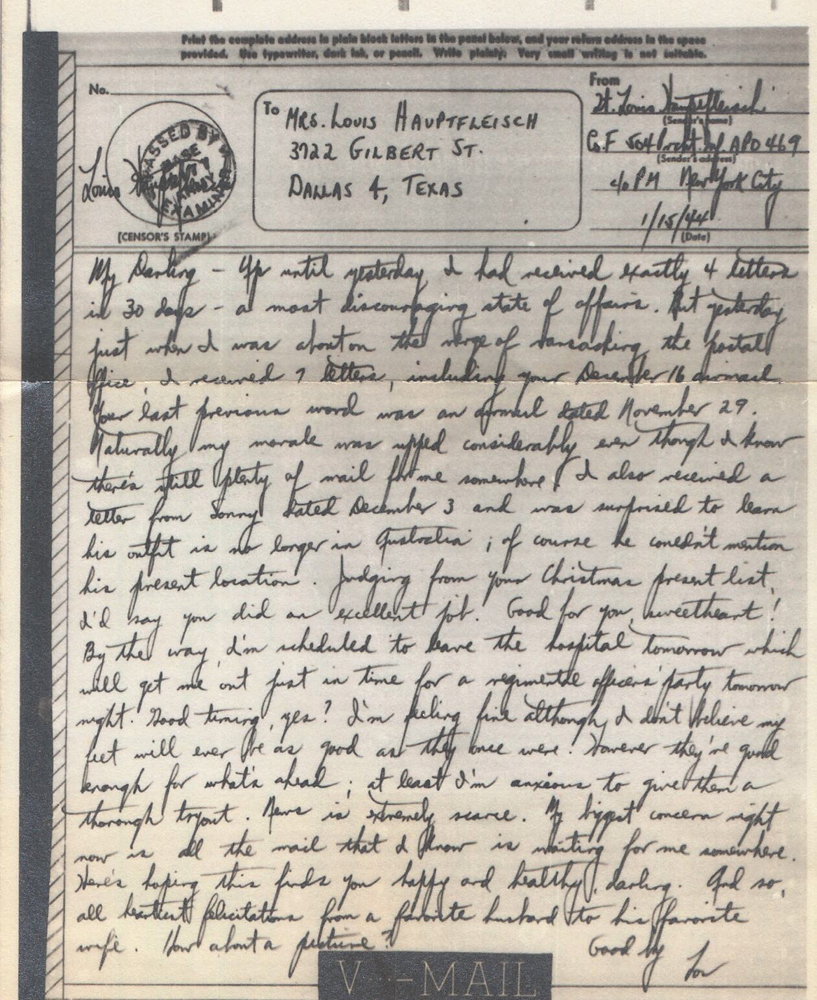 Print the complete address in plain block letters in the panel below, and your return address in the space
provided. Use typewriter, dark ink, or pencil. Write plainly. Very small writing is not suitable.
No.
To
MRS. LOUIS HAUPTFLEISCH
3722 GILBERT ST.
DALLAS 4, TEXAS
From
Lt. Louis Hauptfleisch
(Sender's name)
Co. F 504 Prcht. Inf. APO 469
(Sender's address)
c/o PM New York City
1/15/44
(Date)
PASSED BY
BASE
ARMY
EXAMINER
Louis
(CENSOR'S STAMP)
My Darling — Up until yesterday I had received exactly 4 letters
in 30 days – a most discouraging state of affairs. But yesterday
just when I was about on the verge of ransacking the postal
office, I received 7 letters, including your December 16 airmail.
Your last previous word was an airmail dated November 29.
Naturally my morale was upped considerably even though I know
there's still plenty of mail for me somewhere. I also received a
letter from Sonny dated December 3 and was surprised to learn
his outfit is no longer in Australia; of course he couldn't mention
his present location. Judging from your Christmas present list,
I'd say you did an excellent job. Good for you, sweetheart!
By the way, I'm scheduled to leave the hospital tomorrow which
will get me out just in time for a regimental officers' party tomorrow
night. Good timing, yes? I'm feeling fine although I don't believe my
feet will ever be as good as they once were. However they're good
enough for what's ahead; at least I'm anxious to give them a
thorough tryout. News is extremely scarce. My biggest concern right
now is all the mail that I know is waiting for me somewhere.
Here's hoping this finds you happy and healthy, darling. And so,
all heartiest felicitations from a favorite husband to his favorite
wife. How about a picture?
Good by
Lou
V···—MAIL